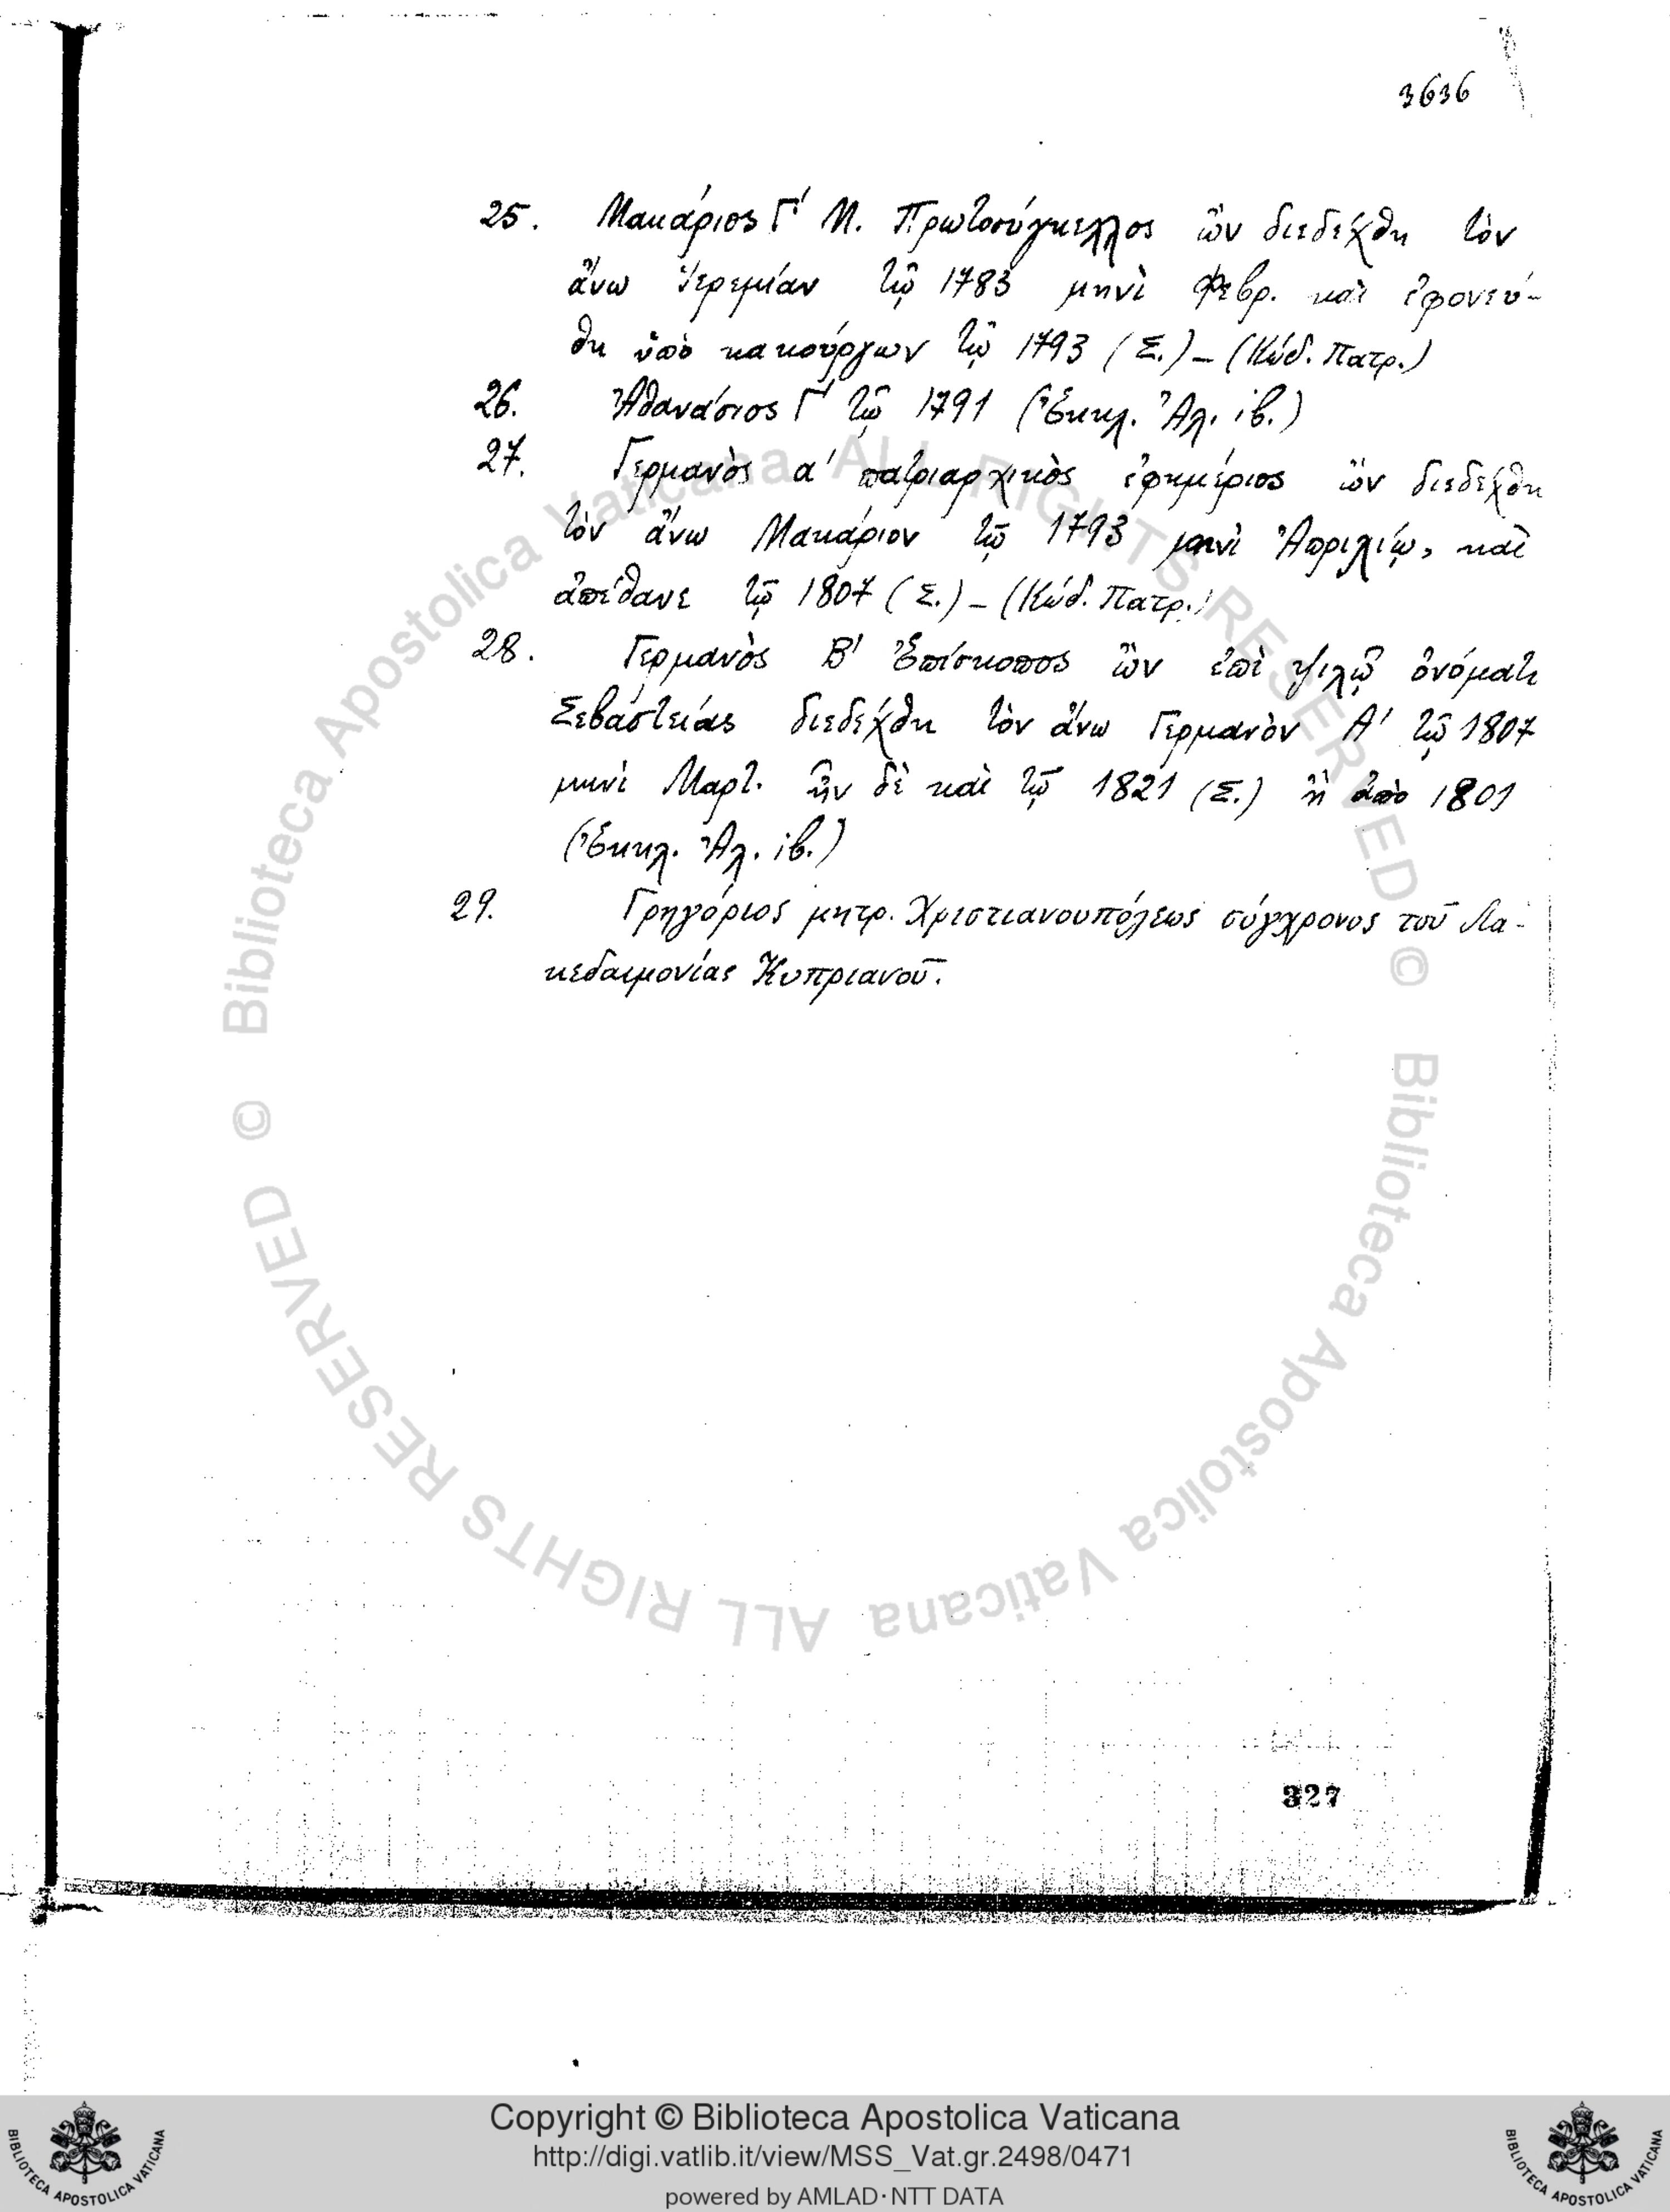 3636
25. Μακάριος Γ' Μ. Πρωτοσύγκελλος ὢν διεδέχθη τὸν
ἄνω Ἱερεμίαν τῷ 1783 μηνὶ Φεβρ. καὶ ἐφονεύ-
θη ὑπὸ κακούργων τῷ 1793 (Σ.) – (Κώδ. Πατρ.)
26. Ἀθανάσιος Γ' τῷ 1791 (Ἐκκλ. Ἀλ. ιβ.)
27. Γερμανὸς α' πατριαρχικὸς ἐφημέριος ὢν διεδέχθη
τὸν ἄνω Μακάριον τῷ 1793 μηνὶ Ἀπριλίῳ, καὶ
ἀπέθανε τῷ 1807 (Σ.) – (Κώδ. Πατρ.)
28. Γερμανὸς Β' Ἐπίσκοπος ὢν ἐπὶ ψιλῷ ὀνόματι
Σεβαστείας διεδέχθη τὸν ἄνω Γερμανὸν Α' τῷ 1807
μηνὶ Μαρτ. ἦν δὲ καὶ τῷ 1821 (Σ.) ἢ ἀπὸ 1801
(Ἐκκλ. Ἀλ. ιβ.)
29. Γρηγόριος μητρ. Χριστιανουπόλεως σύγχρονος τοῦ Λα-
κεδαιμονίας Κυπριανοῦ.
327
© Biblioteca Apostolica Vaticana ALL RIGHTS RESERVED © Biblioteca Apostolica Vaticana ALL RIGHTS RESERVED
BIBLIOTECA APOSTOLICA VATICANA
Copyright © Biblioteca Apostolica Vaticana
http://digi.vatlib.it/view/MSS_Vat.gr.2498/0471
powered by AMLAD·NTT DATA
BIBLIOTECA APOSTOLICA VATICANA